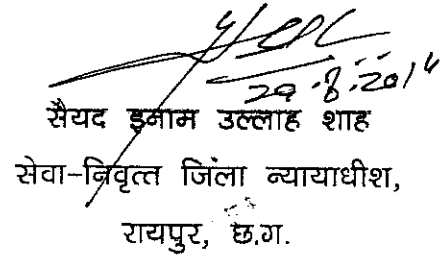 29.8.2014
सैयद इनाम उल्लाह शाह
सेवा-निवृत्त जिला न्यायाधीश,
रायपुर, छ.ग.